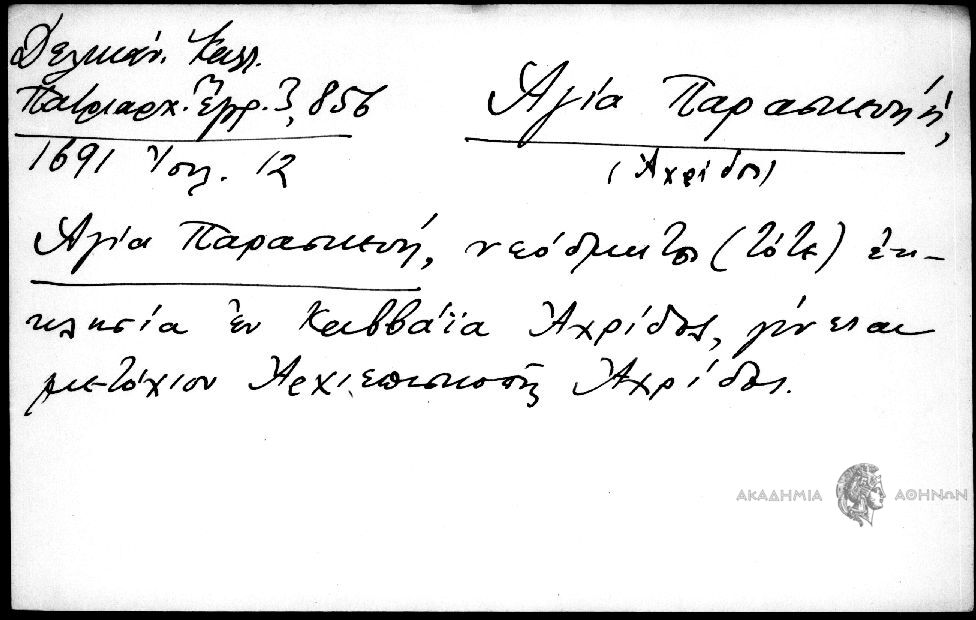 Δελικάν. Καλλ.
Πατριαρχ. Ἔγγρ. 3, 856
1691 Ἰουλ. 12
Ἁγία Παρασκευή ἡ,
(Ἀχρίδος)
Ἁγία Παρασκευή, νεόδμητος (τότε) ἐκ-
κλησία ἐν Καββάϊα Ἀχρίδος, γίνεται
μετόχιον Ἀρχιεπισκοπῆς Ἀχρίδος.
ΑΚΑΔΗΜΙΑ ΑΘΗΝΩΝ